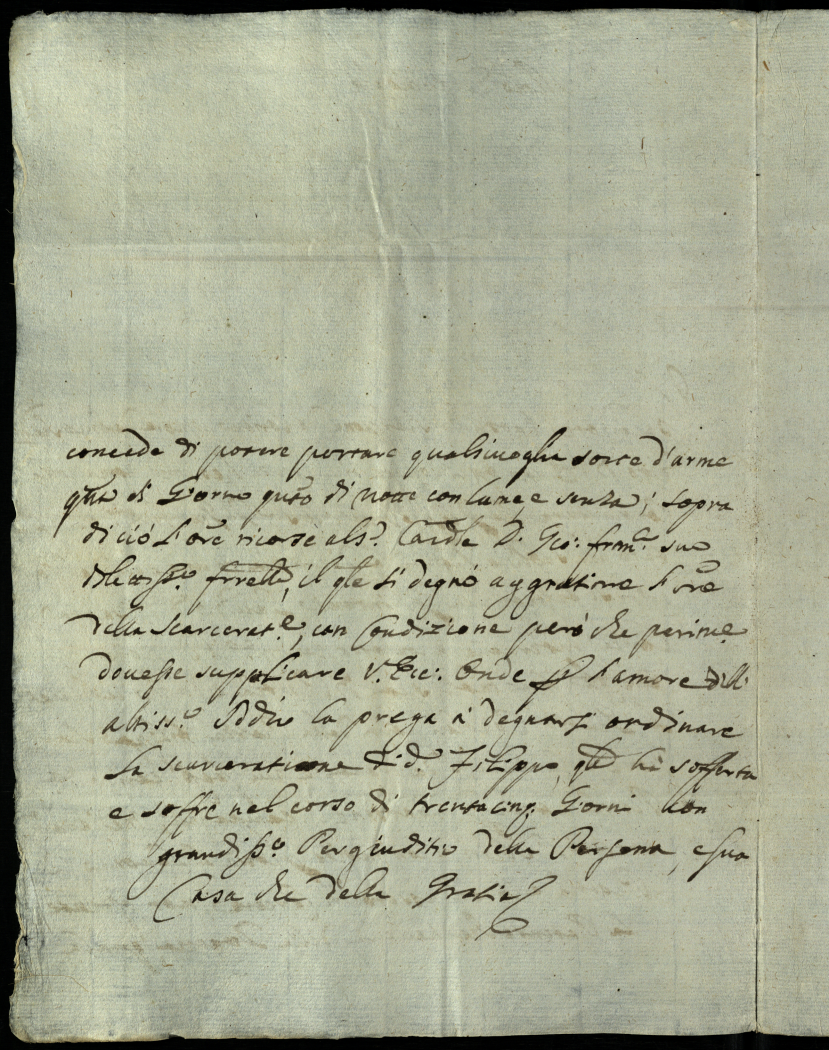 concede di potere portare qualsivoglia sorte d'arme
di Giorno di notte con lume, e senza; sopra
di ciò l'ore ricorse al s.r Cardle D. Gio: suo
il qle si degnò aggratiare l'ore
della scarcerat.e, con condizione però che
dovesse supplicare V. Ecc: Onde l'amore dell'
altiss.o Iddio la prega à degnarsi ordinare
la scarceratione di d.o Filippo, hà sofferta
e soffre nel corso di trentacinq; Giorni con
grandiss.o Pergiuditio della Persona, e sua
Casa che della Gratia